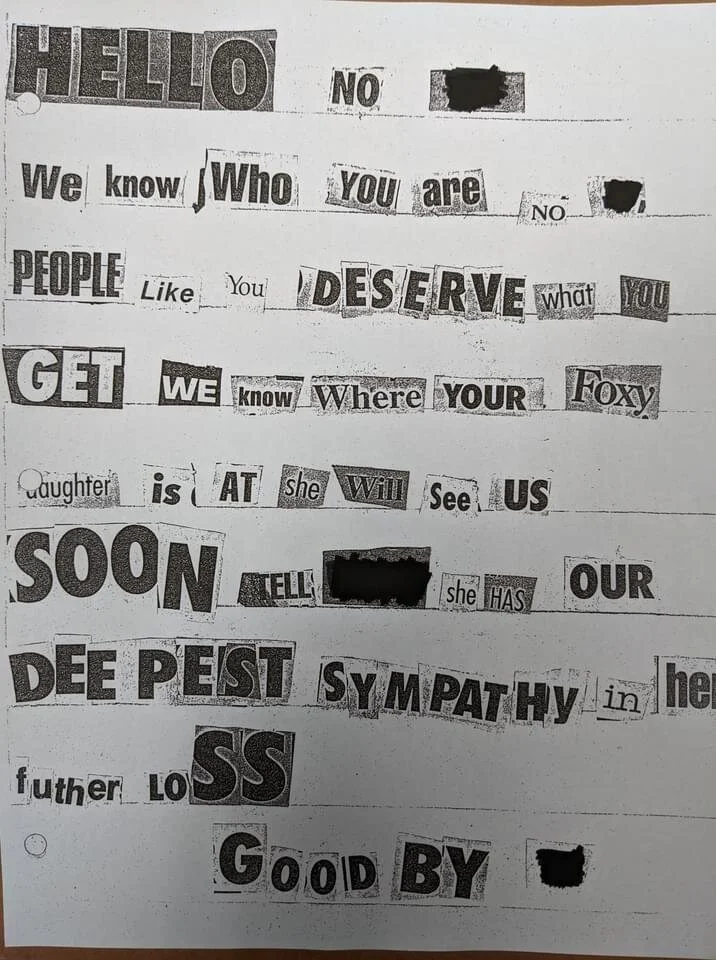 HELLO NO
We know Who YOU are NO
PEOPLE Like You DESERVE what YOU
GET WE know Where YOUR Foxy
daughter is AT she Will See US
SOON TELL she HAS OUR
DEEPEST SYMPATHY in her
futher LOSS
GOOD BY